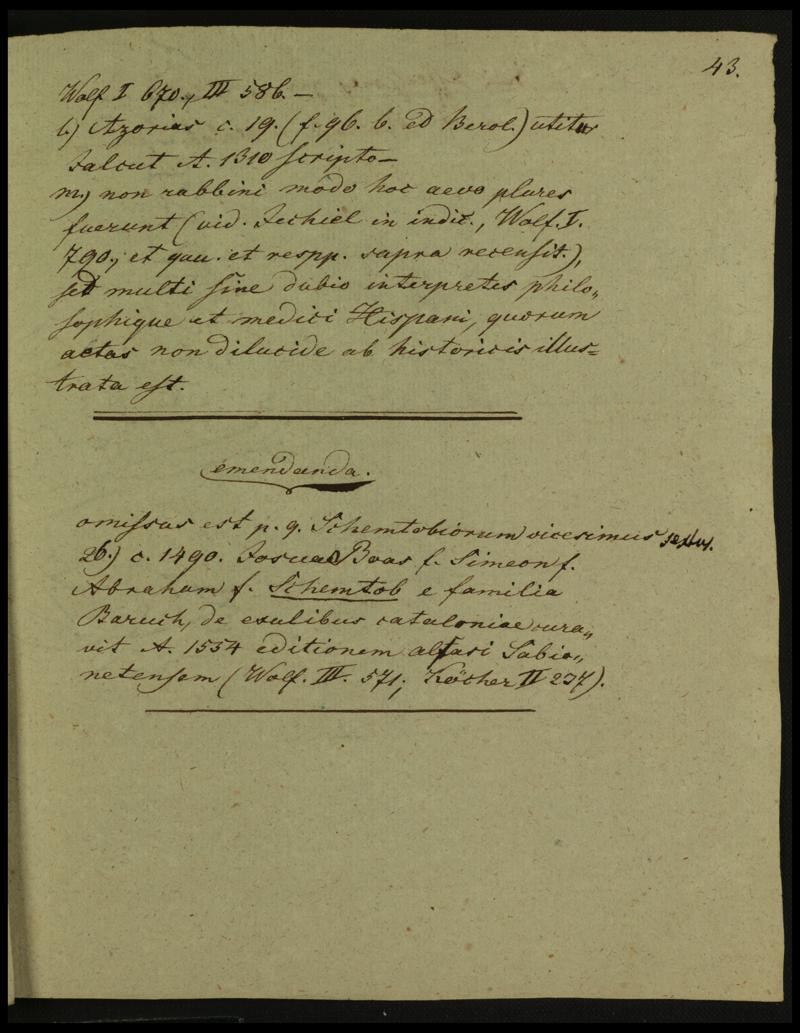 43.
Wolf I 670., III 586. —
l.) Azorias c. 19. (f. 96. b. ed Berol.) utitur
Jalcut A. 1310 scripto —
m.) non rabbini modo hoc aevo plures
fuerunt (vid. Jechiel in indic., Wolf. I.
790., et quu. et respp. supra recensit.),
sed multi sine dubio interpretes philo„
sophique et medici Hispani, quorum
aetas non dilucide ab historicis illus=
trata est.
emendanda.
omissus est p. 9. Schemtobiorum vicesimus sextus.
26.) c. 1490. Josua Boas f. Simeon f.
Abraham f. Schemtob e familia
Baruch, de exulibus cataloniae cura„
vit A. 1554 editionem alfasi Sabio„
netensem (Wolf. III. 571.; Köcher II 237).